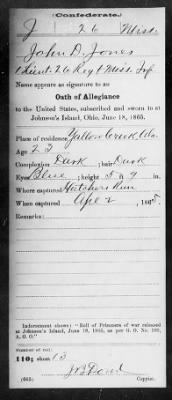 (Confederate.)
J 26 Miss.
John D. Jones
Lieut. 26 Regt Miss. Inf
Name appears as signature to an
Oath of Allegiance
to the United States, subscribed and sworn to at
Johnson's Island, Ohio, June 18, 1865.
Place of residence Yellow Creek
Age 23
Complexion Dark; hair Dark
Eyes Blue; height 5 ft. 9 in.
Where captured Hatchers Run
When captured Apl 2, 1865.
Remarks:
Indorsement shows: "Roll of Prisoners of war released
at Johnson's Island, June 18, 1865, as per G. O. No. 109,
A. G. O."
Number of roll:
110; sheet 13
(665)
Copyist.